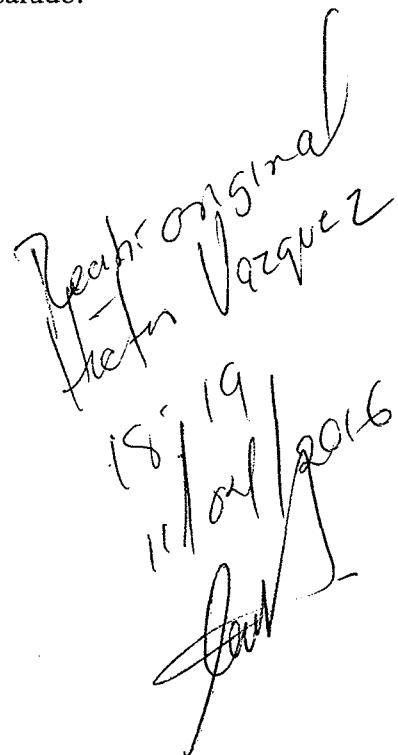 Recibí original
Héctor Vazquez
18:19
11/04/2016